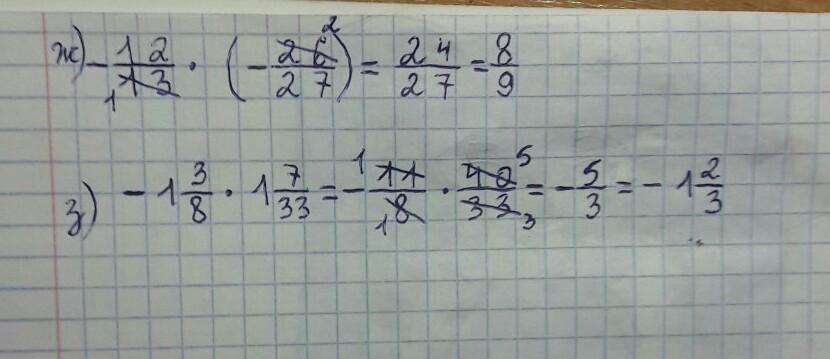 ж) - 12/13 · (- 26/27) = 24/27 = 8/9
з) - 1 3/8 · 1 7/33 = - 11/8 · 40/33 = - 5/3 = - 1 2/3